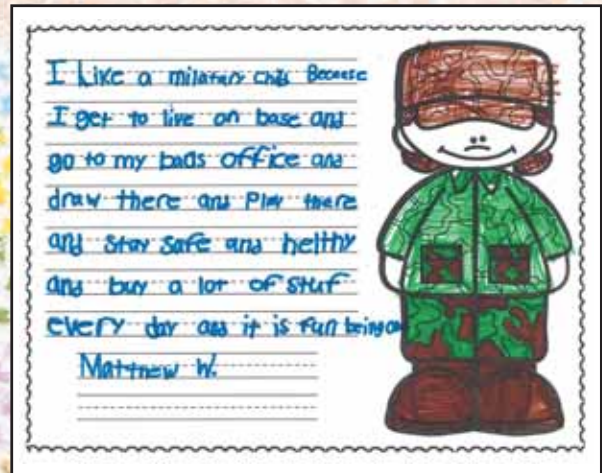 I Like a milatary child Becaese
I get to live on base and
go to my bads office and
draw there and Play there
and stay safe and helthy
and buy a lot of stuf
every day and it is fun being on
Matthew W.